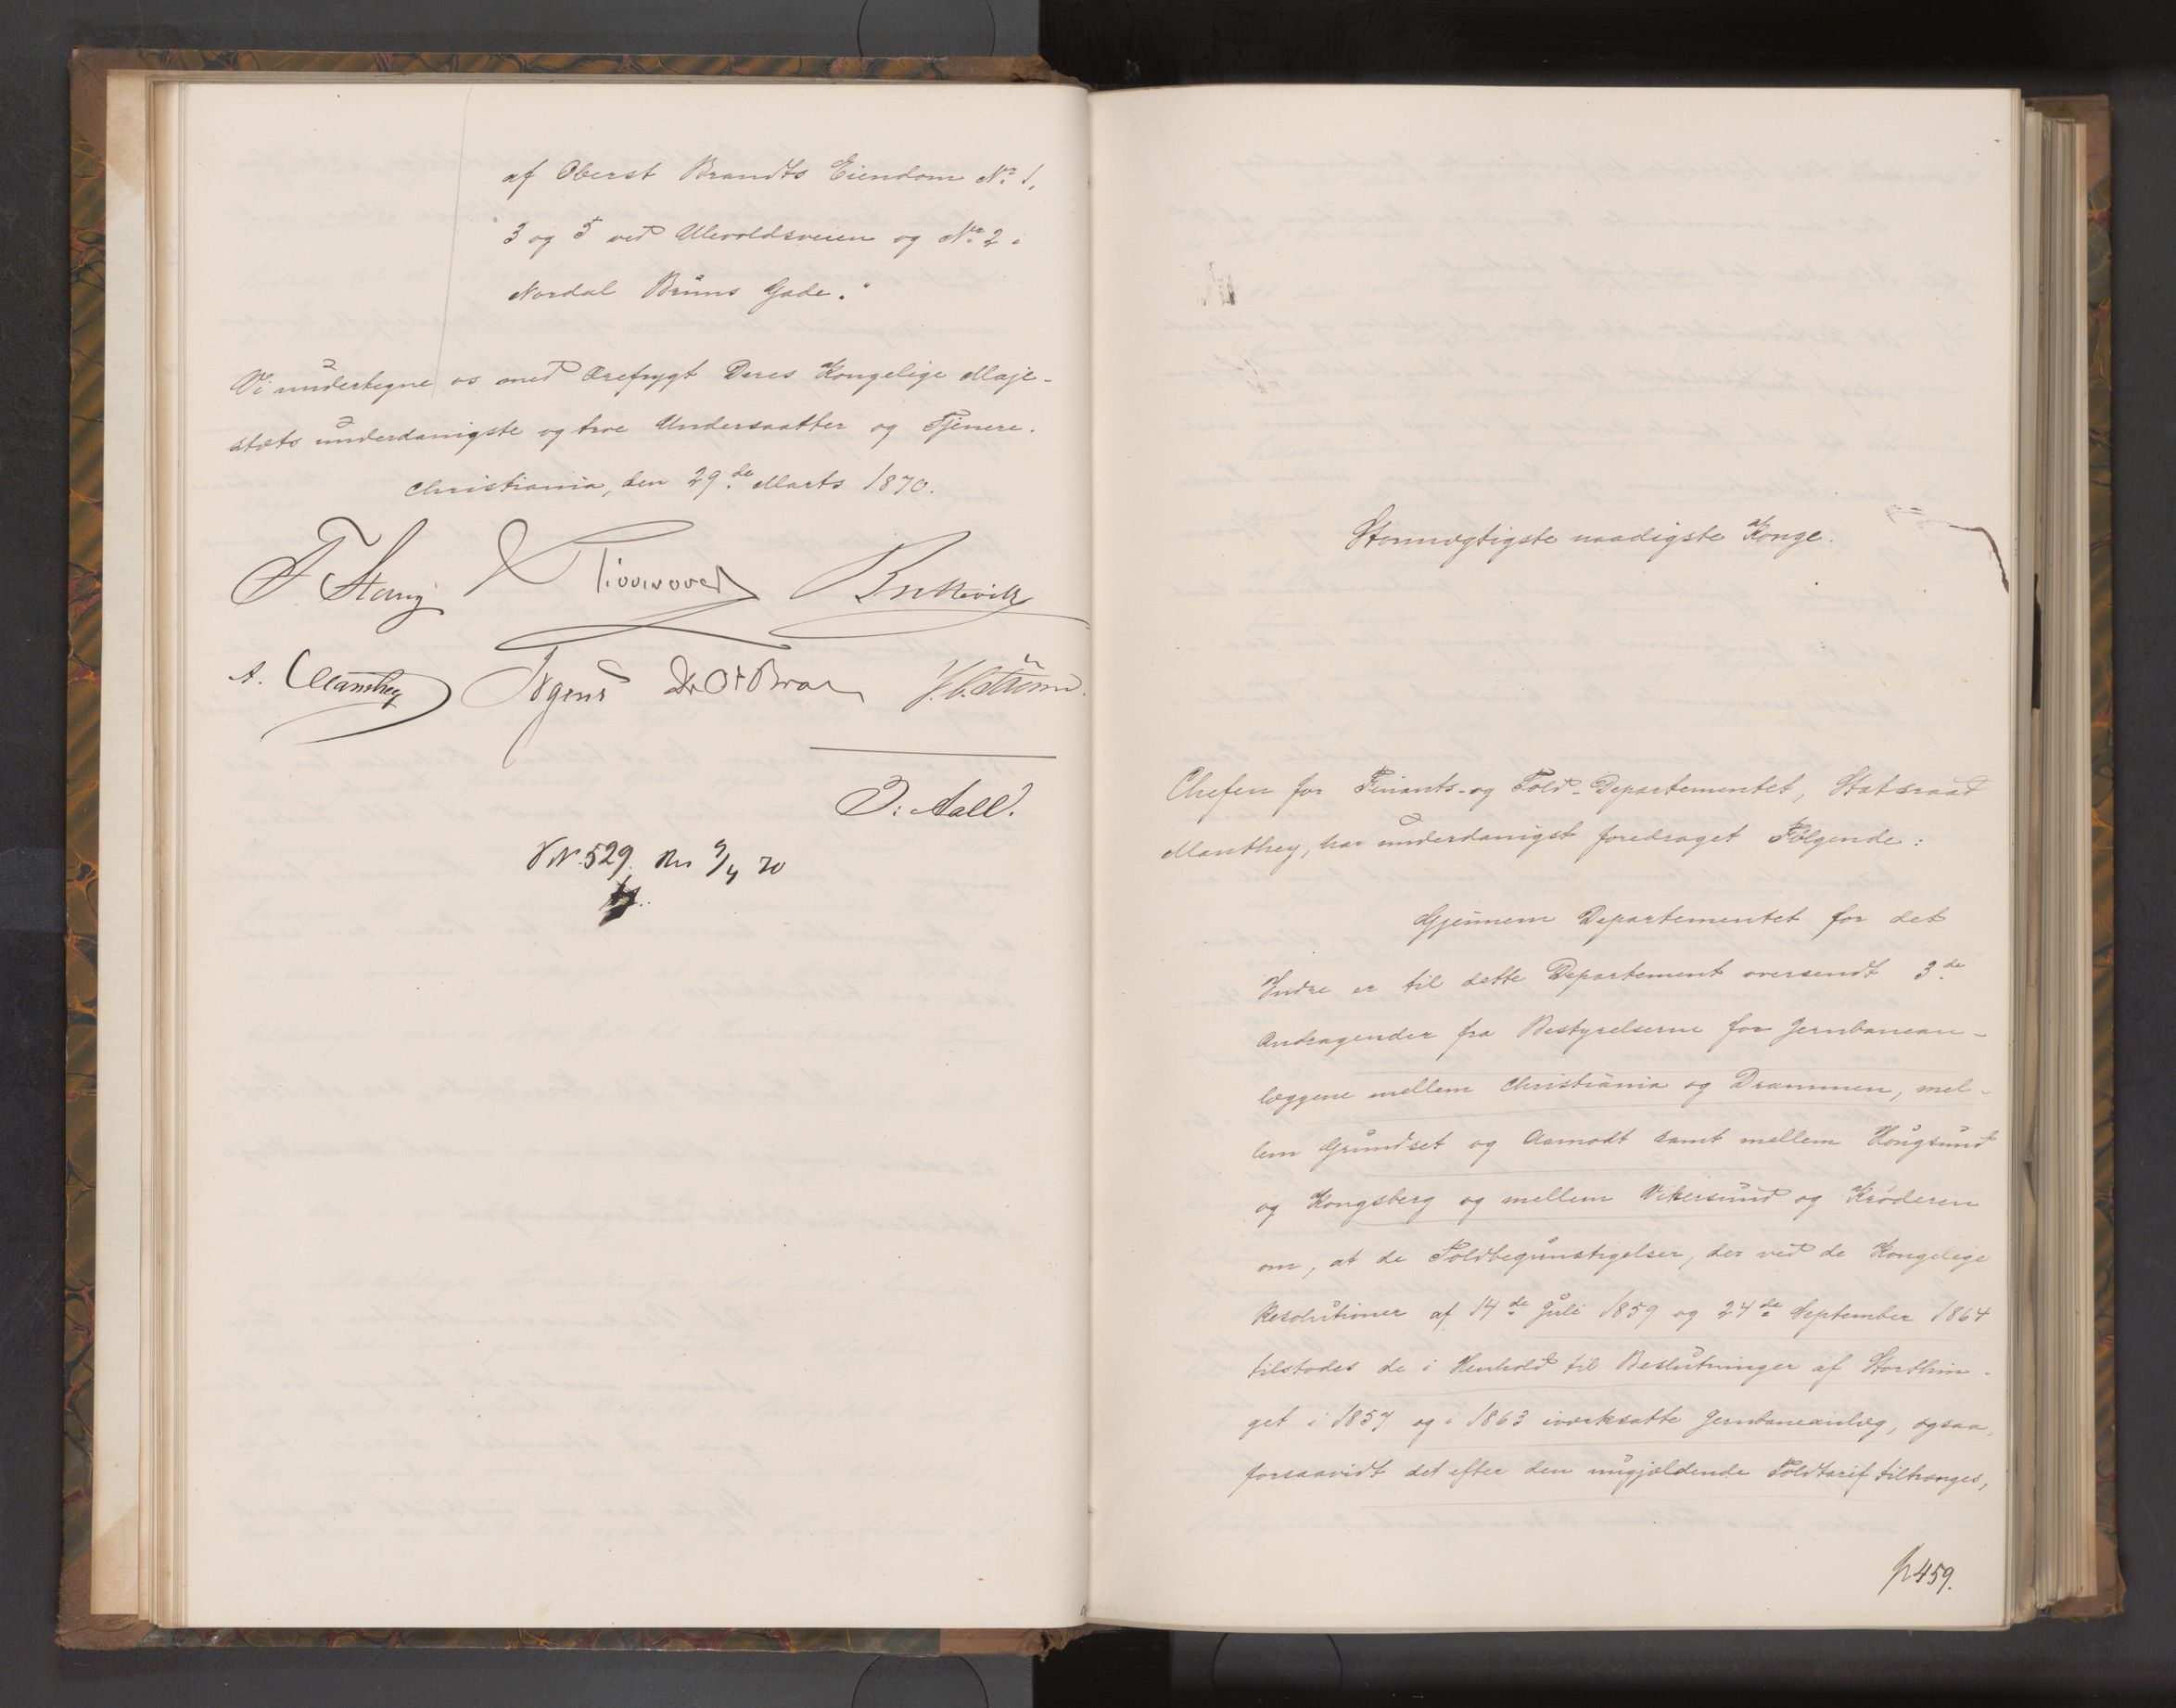 af Oberst Brandts Eiendom No. 1,
3 og 5 ved Ullevoldsveien og No. 2 i
Nordal Bruns Gade."
Vi undertegne os med Ærefrygt Deres Kongelige Maje-
stæts underdanigste og troe Undersaatter og Tjenere.
Christiania, den 29de Marts 1870.
F. Stang Bretteville
A. Manthey Irgens
D: Aall.
529. 9/4 70
Stormægtigste naadigste Konge.
Chefen for Finants- og Told-Departementet, Statsraad
Manthey, har underdanigst foredraget Følgende:
Gjennem Departementet for det
Indre er til dette Departement oversendt 3de
Andragender fra Bestyrelserne for Jernbanean-
læggene mellem Christiania og Drammen, mel-
lem Grundset og Aamodt samt mellem Hougsund
og Kongsberg og mellem Vikersund og Krøderen
om, at de Toldbegunstigelser, der ved de Kongelige
Resolutioner af 14de Juli 1859 og 24de September 1864
tilstodes de i Henhold til Beslutninger af Storthin-
get i 1857 og i 1863 iværksatte Jernbaneanlæg, ogsaa,
forsaavidt det efter den nugjældende Toldtarif tiltrænges,
459.